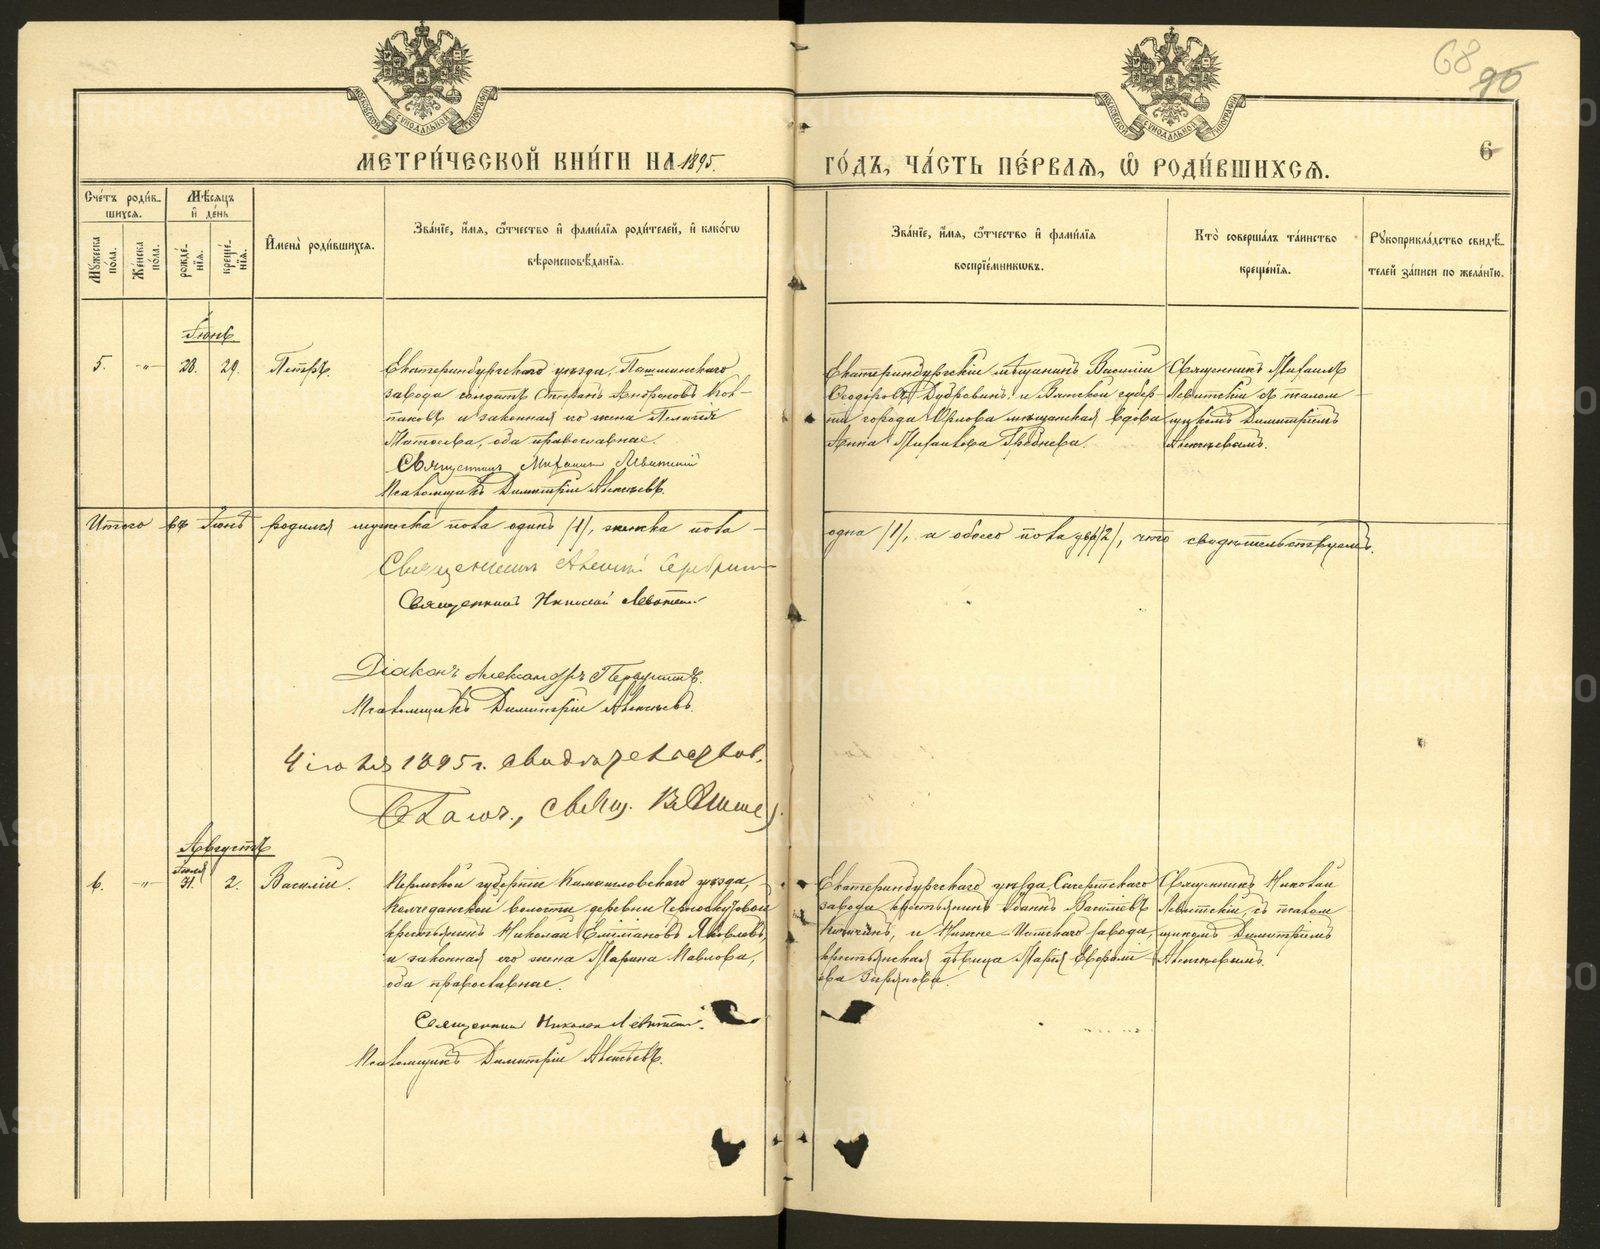 68
90
6
МОСКОВСКОЙ СѴНОДАЛЬНОЙ ТИПОГРАФІИ
МОСКОВСКОЙ СѴНОДАЛЬНОЙ ТИПОГРАФІИ
МЕТРИ́ЧЕСКОЙ КНИ́ГИ НА 1895.
ГО́ДЪ, ЧА́СТЬ ПЕ́РВАЯ, Ѡ РОДИ́ВШИХСЯ.
Сче́тъ роди́вшихся.
Му́жеска по́ла.
Же́нска по́ла.
Мѣ́сяцъ и де́нь
рожде́нїя.
креще́нїя.
Имена̀ роди́вшихся.
Зва́нїе, и́мя, ѻ́тчество и фами́лїя роди́телей, и како́гѡ
вѣроисповѣ́данїя.
Зва́нїе, и́мя, ѻ́тчество и фами́лїя
воспрїе́мникѡвъ.
Кто̀ соверша́лъ та́инство
креще́нїя.
Рꙋкоприкла́дство свидѣ́-
телей за́писи по жела́нїю.
Іюнь
5. -„- 28. 29. Петръ.
Екатеринбургскаго уѣзда, Пышминскаго
завода солдатъ Стефанъ
и законная его жена Пелагія
оба православные.
Священникъ Михаилъ Левитскій
Псаломщикъ Димитрій Алексѣевъ.
Екатеринбургскій мѣщанинъ Василій
Ѳеодоровъ Дубровинъ и Вятской губер-
ніи города Орлова мѣщанская вдова
Анна
Священникъ Михаилъ
Левитскій съ псалом-
щикомъ Димитріемъ
Алексѣевымъ.
Итого въ Іюнѣ родился мужеска пола одинъ /1/, женска пола –
одна /1/, а обоего пола два /2/, что свидѣтельствуемъ.
Священникъ Алексій
Священникъ Николай Левитскій
Діаконъ Александръ
Псаломщикъ Димитрій Алексѣевъ.
4 іюля 1895 г. свидѣтельствов.
Благоч., свящ.
Августъ
Іюля
6. -„- 31. 2. Василій.
Пермской губерніи Камышловскаго уѣзда,
Колчеданской волости деревни Черноскутовой
крестьянинъ Николай Яковлевъ,
и законная его жена Марина Павлова,
оба православные.
Священникъ Николай Левитскій.
Псаломщикъ Димитрій Алексѣевъ.
Екатеринбургскаго уѣзда, Сысертскаго
завода крестьянинъ Іоаннъ Васильевъ
и Нижне-Исетскаго завода,
крестьянская дѣвица Марія Евфимі-
ева Зырянова.
Священникъ Николай
Левитскій, съ псалом
щикомъ Димитріемъ
Алексѣевымъ